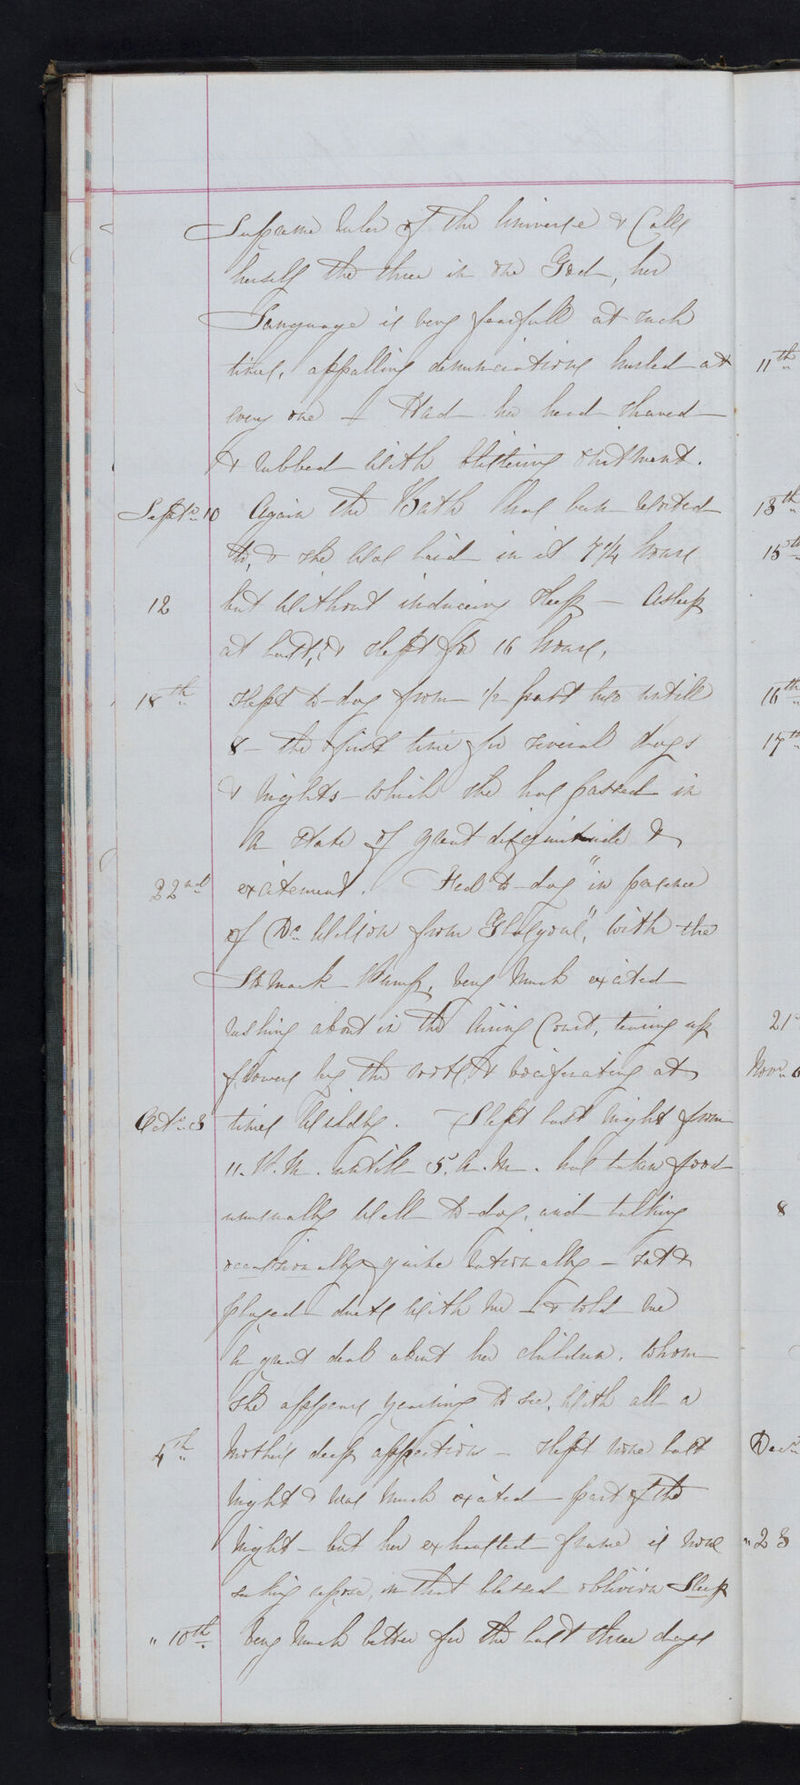 Supreme ruler of the Universe & Calls
herself the three in one God, her
Language is very fearfull at such
times, appalling denunciations hurled at
every one – Had her head shaved
& rubbed with blistering ointment.
Septr 10 Again the Bath has been resorted
to, & she was laid in it 7 1/4 hours
12 but without inducing sleep – Asleep
at last, & slept for 16 hours,
18th Slept to-day from 1/2 past two untill
8 – the first time for several days
& nights – which she has passed in
a state of great disquietude &
22nd excitement. Fed to-day "in presence
of Dr Wilson from Glasgow", with the
Stomach Pump, very much excited
rushing about in the airing Court, tearing up
flowers by the roots, & vociferating at
Octr 3 times wildly. Slept last night from
11. P.M. untill 5. A.M. has taken food
unusually well to-day, and talking
occasionally quite rationally – sat &
played duets with me – & told me
a great deal about her children, whom
she appears yearning to see, with all a
4th Mother's deep affection – Slept none last
night & was much excited – part of the
night – but her exhausted frame is now
seeking repose, in that blessed oblivion Sleep
" 10th Very much better for the last three days
11th
13th
15th
16th
17th
21st
Novr 6
8
Decr
" 23